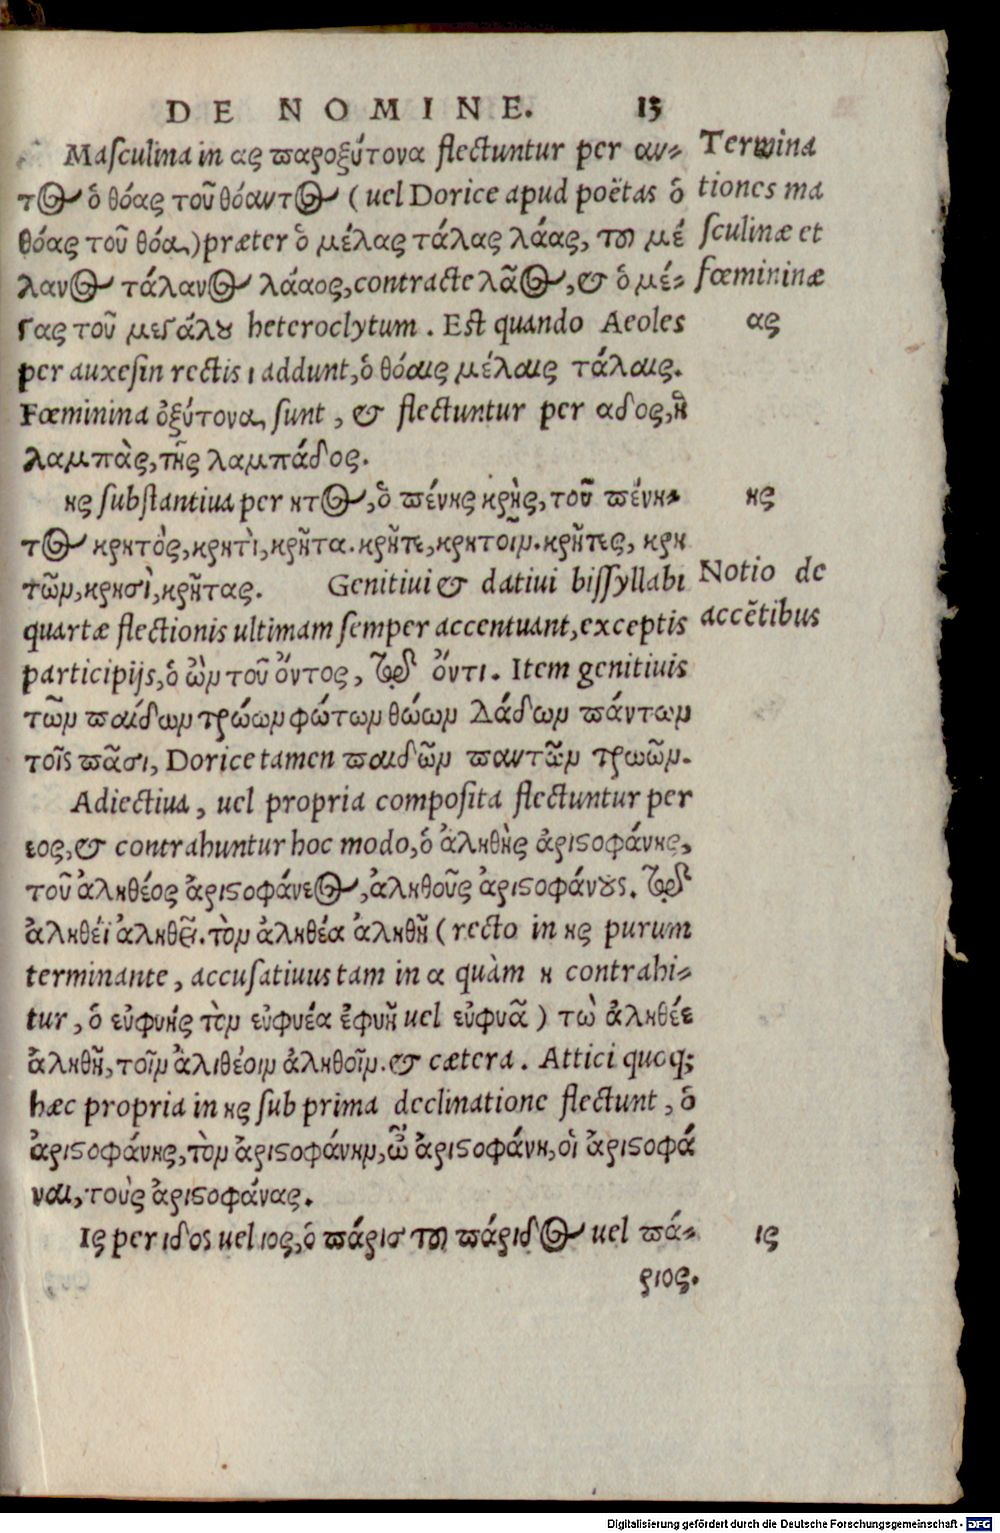 DE NOMINE. 13
Masculina in ας παροξύτονα flectuntur per αν-
τος ὁ θόας τοῦ θόαντος (uel Dorice apud poëtas ὁ
θόας τοῦ θόα,) præter ὁ μέλας τάλας λάας, τοῦ μέ
λανος τάλανος λάαος, contracte λᾶος, & ὁ μέ-
γας τοῦ μεγάλου heteroclytum. Est quando Aeoles
per auxesin rectis ι addunt, ὁ θόαις μέλαις τάλαις.
Fœminina ὀξύτονα, sunt, & flectuntur per αδος, ἡ
λαμπὰς, τῆς λαμπάδος.
ης substantiua per ητος, ὁ πένης κρὴς, τοῦ πένη-
τος κρητὸς, κρητὶ, κρῆτα. κρῆτε, κρητοῖν. κρῆτες, κρη
τῶν, κρησὶ, κρῆτας. Genitiui & datiui bissyllabi
quartæ flectionis ultimam semper accentuant, exceptis
participijs, ὁ ὢν τοῦ ὄντος, τῷ ὄντι. Item genitiuis
τῶν παίδων τρώων φώτων θώων λάδων πάντων
τοῖς πᾶσι, Dorice tamen παιδῶν παντῶν τρωῶν.
Adiectiua, uel propria composita flectuntur per
εος, & contrahuntur hoc modo, ὁ ἀληθὴς ἀριστοφάνης,
τοῦ ἀληθέος ἀριστοφάνεος, ἀληθοῦς ἀριστοφάνους. τῷ
ἀληθέϊ ἀληθεῖ. τὸν ἀληθέα ἀληθῆ (recto in ης purum
terminante, accusatiuus tam in α quàm η contrahi-
tur, ὁ εὐφυής τὸν εὐφυέα ἐφυῆ uel εὐφυᾶ) τὼ ἀληθέε
ἀληθῆ, τοῖν ἀλιθέοιν ἀληθοῖν. & cætera. Attici quoq;
hæc propria in ης sub prima declinatione flectunt, ὁ
ἀριστοφάνης, τὸν ἀριστοφάνην, ὦ ἀριστοφάνη, οἱ ἀριστοφά
ναι, τοὺς ἀριστοφάνας.
Ις per ιδος uel ιος, ὁ πάρις τοῦ πάριδος uel πά-
ριος.
Termina
tiones ma
sculinæ et
fœmininæ
ας
ης
Notio de
accẽtibus
ις
Digitalisierung gefördert durch die Deutsche Forschungsgemeinschaft - DFG